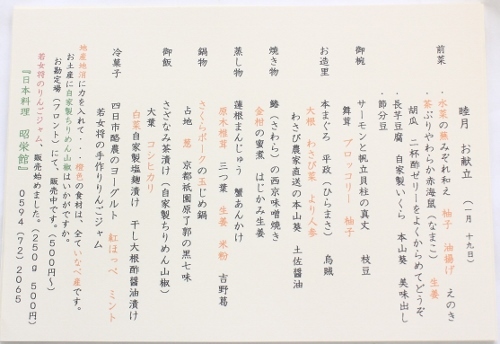 睦月 お献立 (一月 十九日)
前菜
・水菜の蕪みぞれ和え 柚子 油揚げ えのき
・茶ぶりやわらか赤海鼠(なまこ) 生姜
胡瓜 二杯酢ゼリーをよくからめてどうぞ
・長芋豆腐 自家製いくら 本山葵 美味出し
・節分豆
御椀 サーモンと帆立貝柱の真丈 枝豆
舞茸 ブロッコリー 柚子
お造里 本まぐろ 平政(ひらまさ) 烏賊
大根 わさび菜 より人参
わさび農家直送の本山葵 土佐醤油
焼き物 鰆(さわら)の西京味噌焼き
金柑の蜜煮 はじかみ生姜
蒸し物 蓮根まんじゅう 蟹あんかけ
原木椎茸 三つ葉 生姜 米粉 吉野葛
鍋物 さくらポークの玉じめ鍋
占地 葱 京都祇園原了郭の黒七味
御飯 さざなみ茶漬け(自家製ちりめん山椒)
大葉 コシヒカリ
白菜自家製塩麹漬け 干し大根酢醤油漬け
冷菓子 四日市酪農のヨーグルト 紅ほっぺ ミント
若女将の手作りりんごジャム
地産地消に力を入れて・・・橙色の食材は、全ていなべ産です。
お土産に自家製ちりめん山椒はいかがですか。
お勘定場(フロント)にて、販売中です。(500円)
若女将のりんごジャム、販売始めました。(250g 500円)
『日本料理 昭栄館』 0594(72)2065